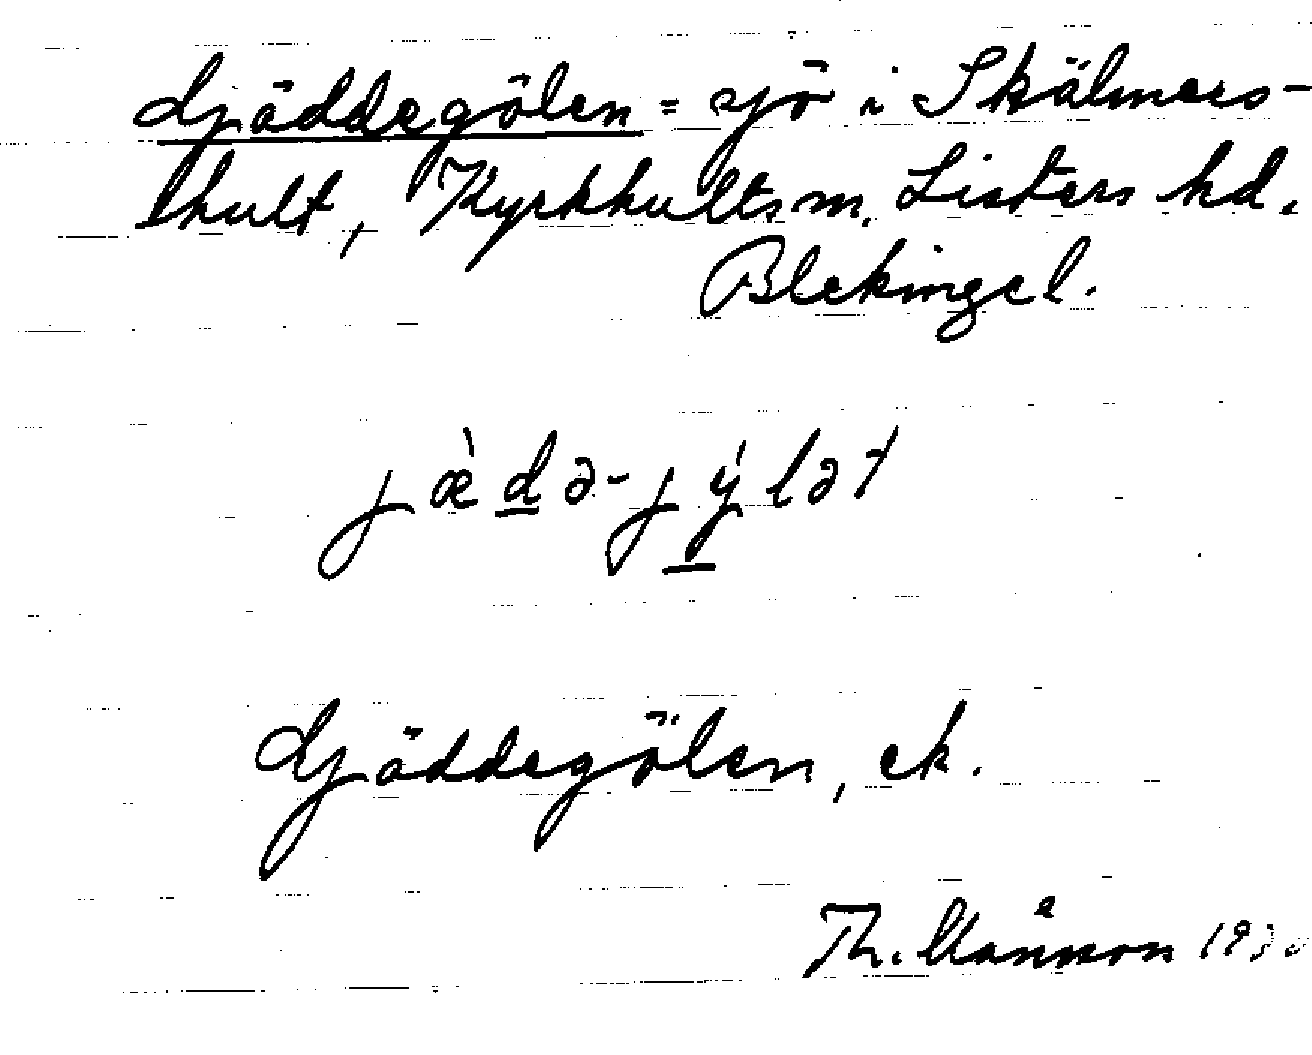 Gjäddegölen = sjö i Skälmers-
hult, Kyrkhults sn, Listers hd.
Blekinge l.
jæ̀də-jýlət
Gjäddegölen, ek.
Th. 1930